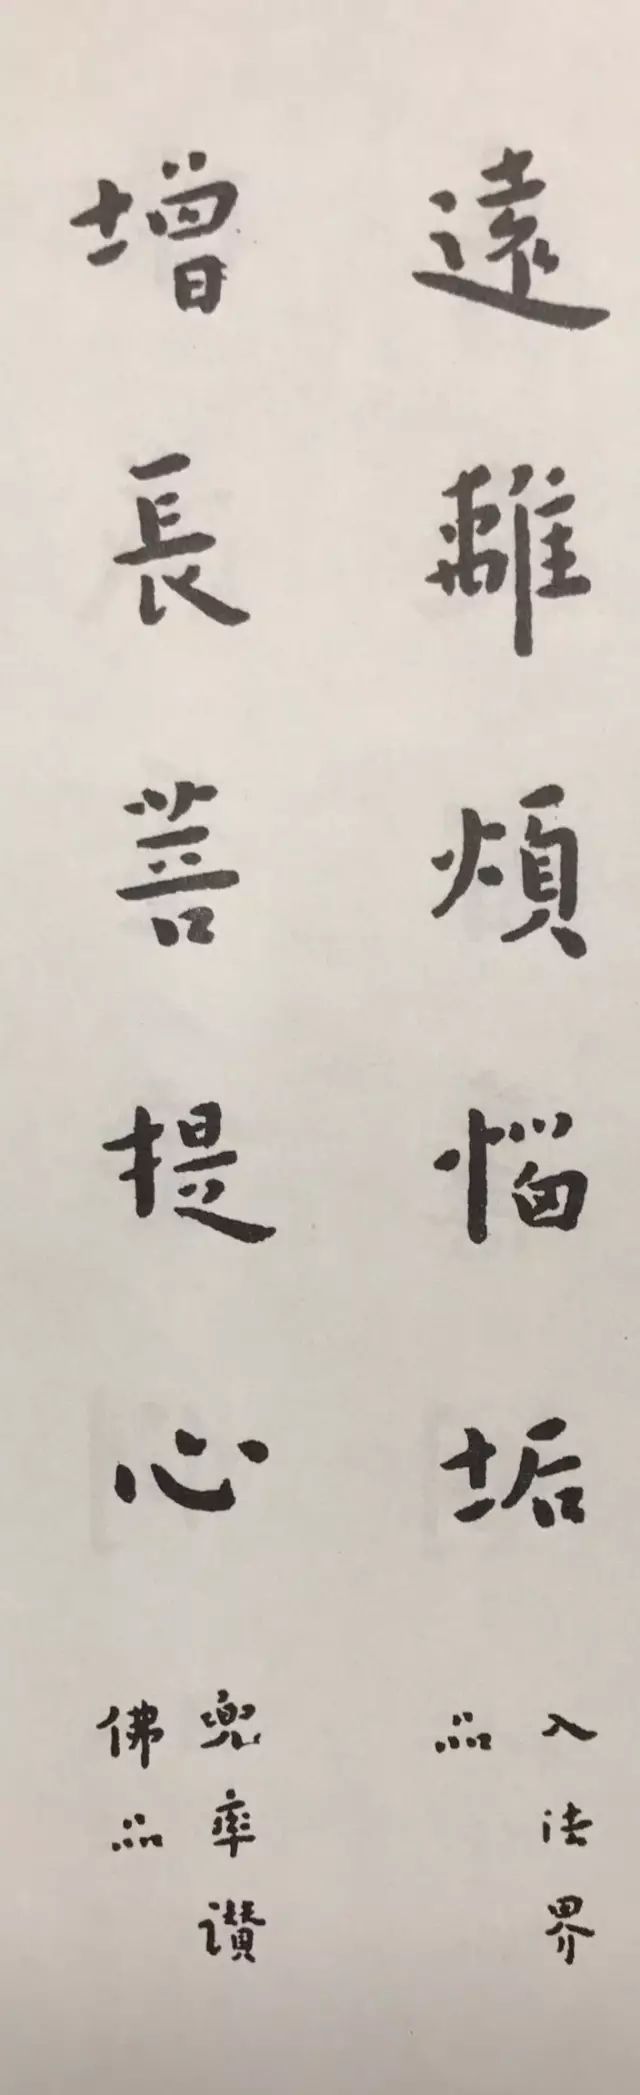 遠離煩惱垢
入法界
品
增長菩提心
兜率讚
佛品